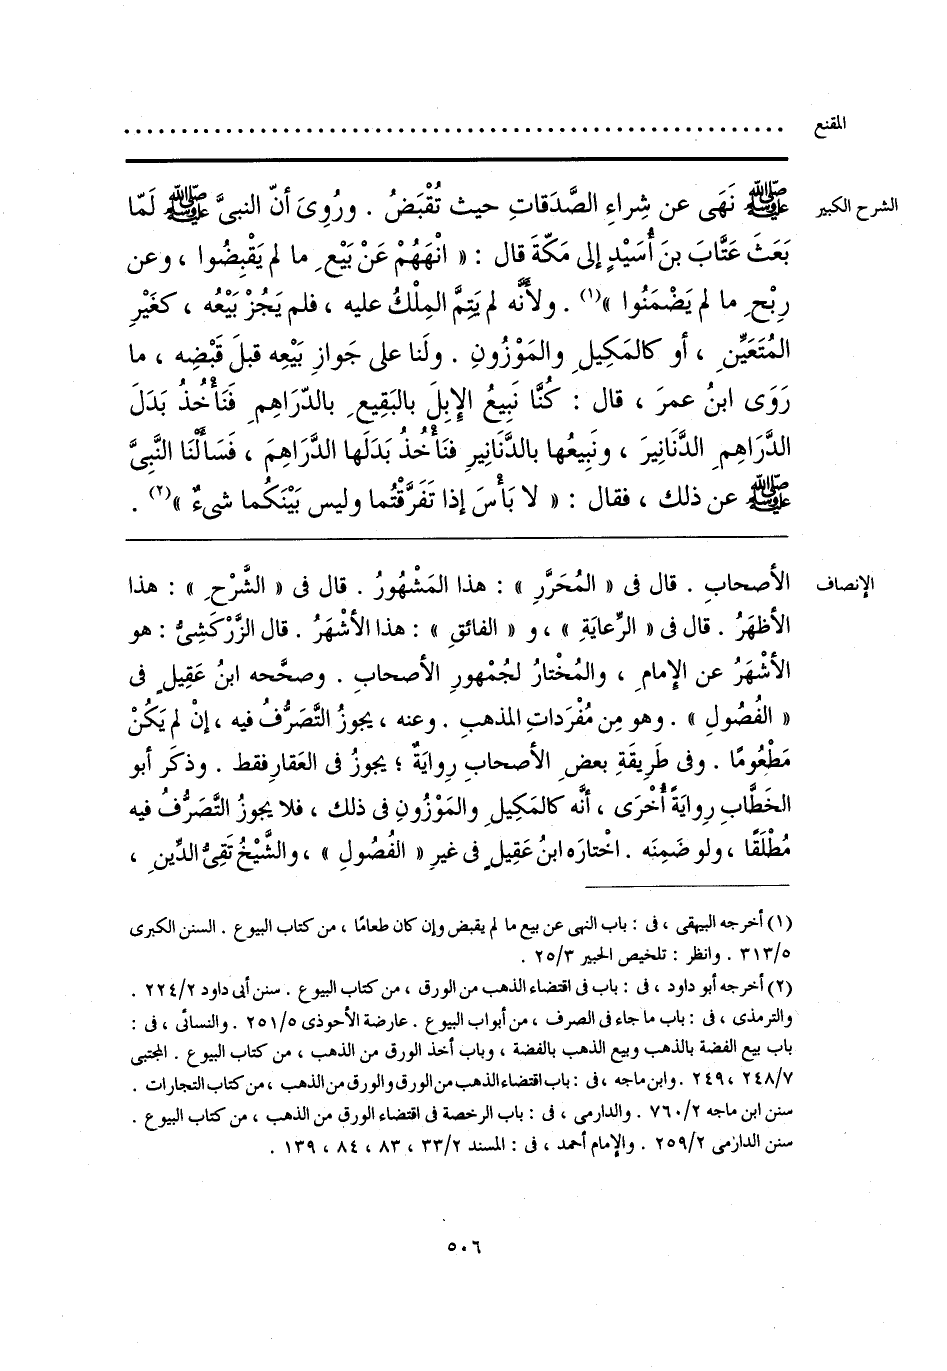 المقنع ..................................................
الشرح الكبير ﷺ نَهَى عن شِراءِ الصَّدَقاتِ حيث تُقْبَضُ . ورُوِىَ أنّ النبىَّ ﷺ لَمّا
بَعَثَ عَتَّابَ بنَ أُسَيْدٍ إلى مَكّةَ قال : « انْهَهُمْ عَنْ بَيْعِ ما لم يَقْبِضُوا ، وعن
رِبْحِ ما لم يَضْمَنُوا »(١) . ولأنَّه لم يَتِمَّ المِلْكُ عليه ، فلم يَجُزْ بَيْعُه ، كغَيْرِ
المُتَعَيِّنِ ، أو كالمَكِيلِ والمَوْزُونِ . ولَنا على جَوازِ بَيْعِه قبلَ قَبْضِه ، ما
رَوَى ابنُ عمرَ ، قال : كُنَّا نَبِيعُ الإبِلَ بالبَقِيعِ بالدّرَاهِمِ فَنَأْخُذُ بَدَلَ
الدَّرَاهِمِ الدَّنَانِيرَ ، ونَبِيعُها بالدَّنَانِيرِ فنَأْخُذُ بَدَلَها الدَّرَاهِمَ ، فَسَأَلْنا النَّبِىَّ
ﷺ عن ذلك ، فقال : « لا بَأْسَ إذا تَفَرَّقْتُما وليس بَيْنَكُما شىءٌ »(٢) .
الإنصاف الأصحابِ . قال فى « المُحَرَّرِ » : هذا المَشْهُورُ . قال فى « الشَّرْحِ » : هذا
الأظهَرُ . قال فى « الرِّعايَةِ » ، و « الفائقِ » : هذا الأشْهَرُ . قال الزَّرْكَشِىُّ : هو
الأشْهَرُ عن الإِمامِ ، والمُخْتارُ لجُمْهورِ الأصحابِ . وصحَّحه ابنُ عَقِيلٍ فى
« الفُصُولِ » . وهو مِن مُفْرَداتِ المذهبِ . وعنه ، يجوزُ التَّصَرُّفُ فيه ، إنْ لم يَكُنْ
مَطْعُومًا . وفى طَرِيقَةِ بعضِ الأصحابِ رِوايَةٌ ؛ يجوزُ فى العَقارِ فقط . وذكَر أبو
الخَطَّابِ رِوايَةً أُخْرَى ، أنَّه كالمَكِيلِ والمَوْزُونِ فى ذلك ، فلا يجوزُ التَّصَرُّفُ فيه
مُطْلَقًا ، ولو ضَمِنَه . اخْتارَه ابنُ عَقِيلٍ فى غيرِ « الفُصُولِ » ، والشَّيْخُ تَقِىُّ الدِّينِ ،
(١) أخرجه البيهقى ، فى : باب النهى عن بيع ما لم يقبض وإن كان طعامًا ، من كتاب البيوع . السنن الكبرى
٣١٣/٥ . وانظر : تلخيص الحبير ٢٥/٣ .
(٢) أخرجه أبو داود ، فى : باب فى اقتضاء الذهب من الورق ، من كتاب البيوع . سنن أبى داود ٢٢٤/٢ .
والترمذى ، فى : باب ما جاء فى الصرف ، من أبواب البيوع . عارضة الأحوذى ٢٥١/٥ . والنسائى ، فى :
باب بيع الفضة بالذهب وبيع الذهب بالفضة ، وباب أخذ الورق من الذهب ، من كتاب البيوع . المجتبى
٢٤٨/٧ ، ٢٤٩ . وابن ماجه ، فى : باب اقتضاء الذهب من الورق والورق من الذهب ، من كتاب التجارات .
سنن ابن ماجه ٧٦٠/٢ . والدارمى ، فى : باب الرخصة فى اقتضاء الورق من الذهب ، من كتاب البيوع .
سنن الدارمى ٢٥٩/٢ . والإمام أحمد ، فى : المسند ٣٣/٢ ، ٨٣ ، ٨٤ ، ١٣٩ .
٥٠٦